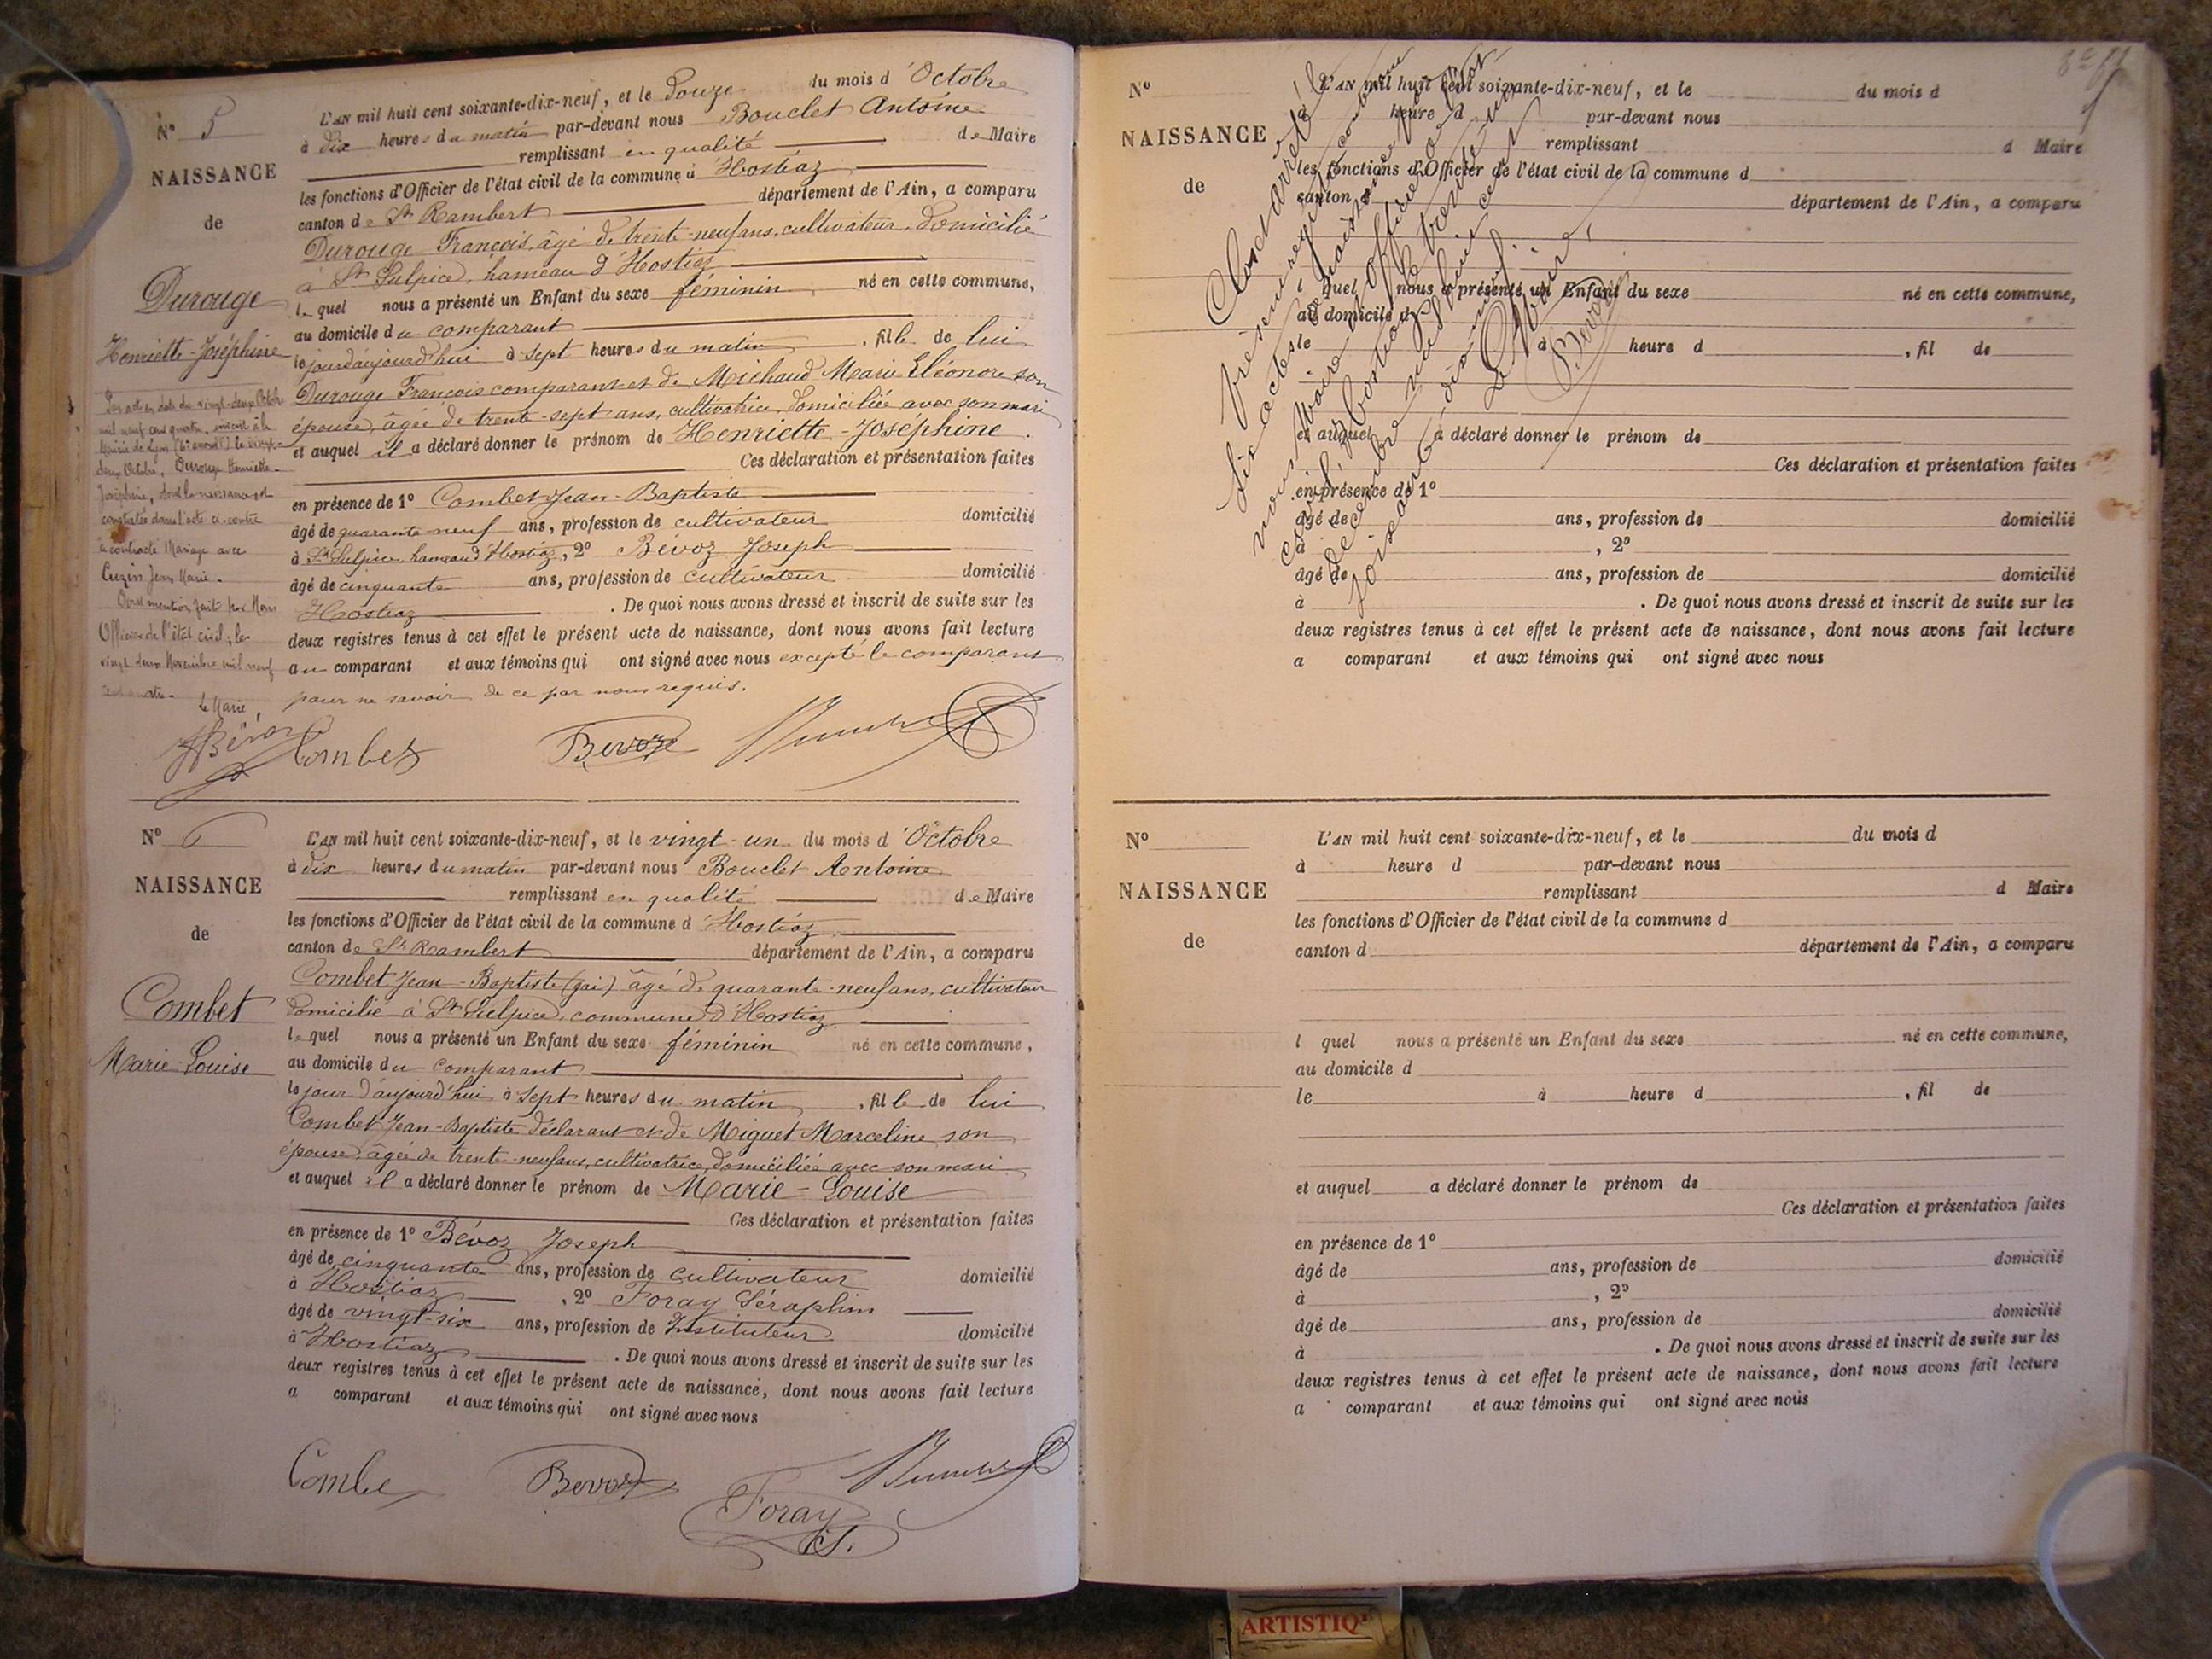 N° 5
NAISSANCE
de
Durouge
Henriette-Joséphine
L'AN mil huit cent soixante-dix-neuf, et le Douze du mois d'Octobre
à dix heures du matin par-devant nous Bouclet Antoine
remplissant en qualité de Maire
les fonctions d'Officier de l'état civil de la commune d'Hostiaz
canton de St Rambert département de l'Ain, a comparu
Durouge François, âgé de trente-neuf ans, cultivateur, domicilié
à St Sulpice, hameau d'Hostiaz
lequel nous a présenté un Enfant du sexe féminin né en cette commune,
au domicile du comparant
le jour d'aujourd'hui à sept heures du matin, fille de lui
Durouge François comparant et de Michaud Marie Eléonore son
épouse, âgée de trente-sept ans, cultivatrice, domiciliée avec son mari
et auquel il a déclaré donner le prénom de Henriette-Joséphine.
Ces déclaration et présentation faites
en présence de 1° Combet Jean-Baptiste
âgé de quarante neuf ans, profession de cultivateur domicilié
à St Sulpice, hameau d'Hostiaz, 2° Bévoz Joseph
âgé de cinquante ans, profession de cultivateur domicilié
Hostiaz. De quoi nous avons dressé et inscrit de suite sur les
deux registres tenus à cet effet le présent acte de naissance, dont nous avons fait lecture
au comparant et aux témoins qui ont signé avec nous excepté le comparant
pour ne savoir de ce par nous requis.
Par acte en date du vingt-deux Octobre
mil neuf cent quatre, inscrit à la
Mairie de Lyon le vingt-
deux Octobre, Durouge Henriette-
Joséphine, dont la naissance est
constatée dans l'acte ci-contre
a contracté Mariage avec
Cuzin Jean Marie.
mention faite par Nous
Officier de l'état civil, le
vingt deux Novembre mil neuf
cent quatre.
Le Maire,
Bévoz
Combet
Bevoz
N° 6
NAISSANCE
de
Combet
Marie-Louise
L'AN mil huit cent soixante-dix-neuf, et le vingt-un du mois d'Octobre
à dix heures du matin par-devant nous Bouclet Antoine
remplissant en qualité de Maire
les fonctions d'Officier de l'état civil de la commune d'Hostiaz
canton de St Rambert département de l'Ain, a comparu
Combet Jean-Baptiste (gai) âgé de quarante-neuf ans, cultivateur
domicilié à St Sulpice, commune d'Hostiaz
lequel nous a présenté un Enfant du sexe féminin né en cette commune,
au domicile du comparant
le jour d'aujourd'hui à sept heures du matin, fille de lui
Combet Jean-Baptiste déclarant et de Miguet Marceline son
épouse, âgée de trente-neuf ans, cultivatrice, domiciliée avec son mari
et auquel il a déclaré donner le prénom de Marie-Louise
Ces déclaration et présentation faites
en présence de 1° Bévoz Joseph
âgé de cinquante ans, profession de cultivateur domicilié
à Hostiaz, 2° Foray Séraphin
âgé de vingt-six ans, profession de Instituteur domicilié
à Hostiaz. De quoi nous avons dressé et inscrit de suite sur les
deux registres tenus à cet effet le présent acte de naissance, dont nous avons fait lecture
a comparant et aux témoins qui ont signé avec nous
Combe
Bevoz
Foray
S.
N°
NAISSANCE
de
L'AN mil huit cent soixante-dix-neuf, et le du mois d
heure d par-devant nous
remplissant d Maire
les fonctions d'Officier de l'état civil de la commune d
canton département de l'Ain, a comparu
l quel nous a présenté un Enfant du sexe né en cette commune,
au domicile d
le à heure d, fil de
et auquel a déclaré donner le prénom de
Ces déclaration et présentation faites
en présence de 1°
âgé de ans, profession de domicilié
à, 2°
âgé de ans, profession de domicilié
à. De quoi nous avons dressé et inscrit de suite sur les
deux registres tenus à cet effet le présent acte de naissance, dont nous avons fait lecture
a comparant et aux témoins qui ont signé avec nous
Clos et arrêté le
présent registre
six actes de naissance
nous Maire Officier
civil d'Hostiaz le trente un
décembre mil huit cent
soixante dix-neuf.
Le Maire,
Bevoz
N°
NAISSANCE
de
L'AN mil huit cent soixante-dix-neuf, et le du mois d
à heure d par-devant nous
remplissant d Maire
les fonctions d'Officier de l'état civil de la commune d
canton d département de l'Ain, a comparu
l quel nous a présenté un Enfant du sexe né en cette commune,
au domicile d
le à heure d, fil de
et auquel a déclaré donner le prénom de
Ces déclaration et présentation faites
en présence de 1°
âgé de ans, profession de domicilié
à, 2°
âgé de ans, profession de domicilié
à. De quoi nous avons dressé et inscrit de suite sur les
deux registres tenus à cet effet le présent acte de naissance, dont nous avons fait lecture
a comparant et aux témoins qui ont signé avec nous
ARTISTIQ